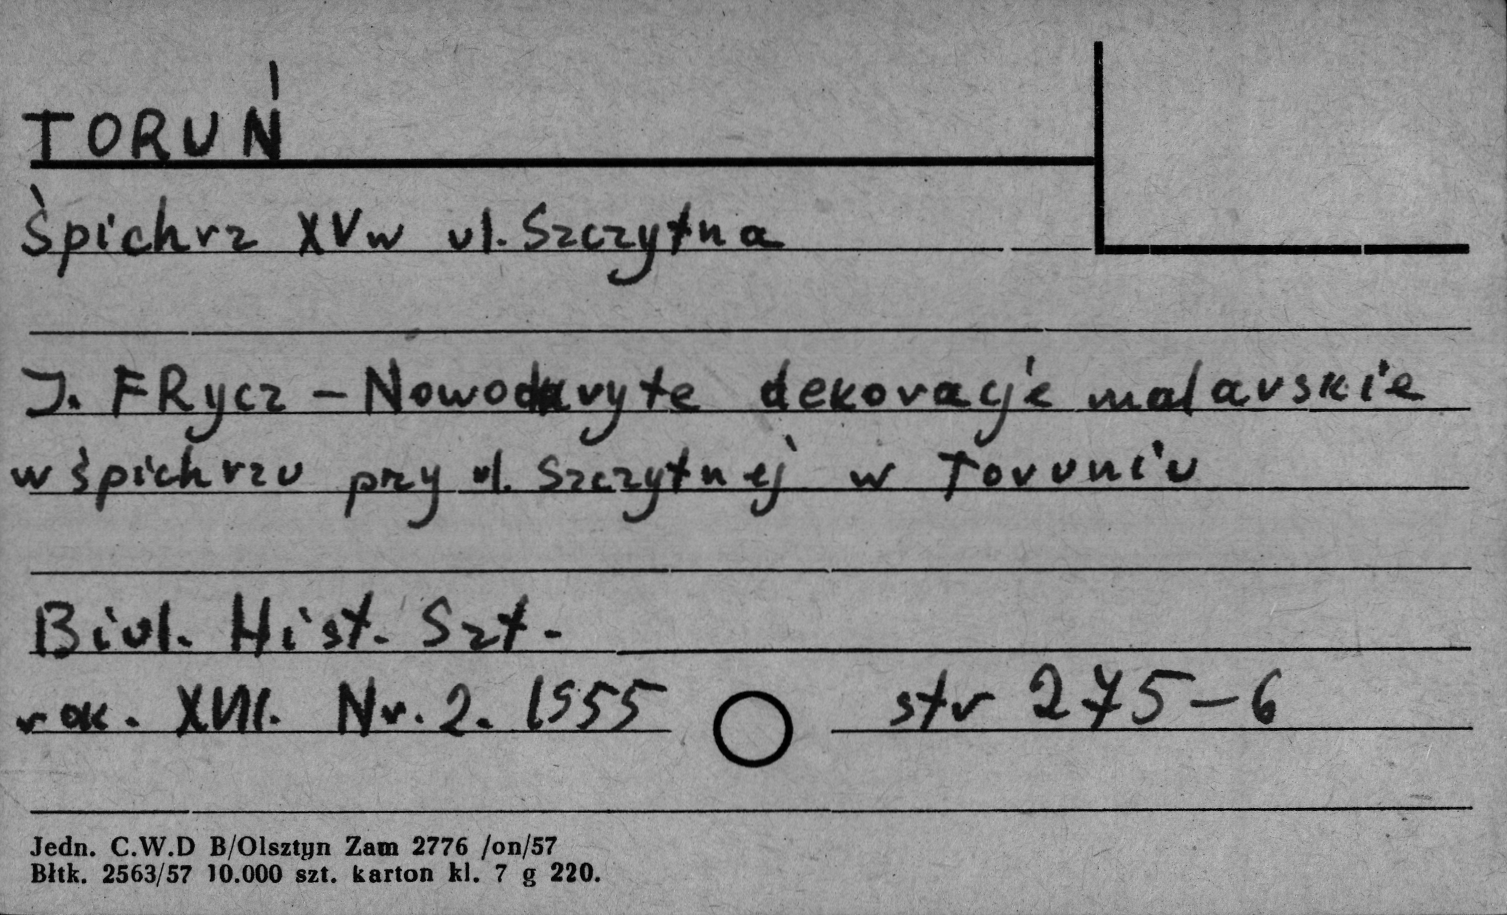 TORUŃ
Śpichrz XVw ul. Szczytna
J. FRycz – Nowoodkryte dekoracje malarskie
w śpichrzu przy ul. Szczytnej w Toruniu
Biul. Hist. Szt.
rok. XVII. Nr. 2. 1955 str 275–6
Jedn. C.W.D B/Olsztyn Zam 2776 /on/57
Błtk. 2563/57 10.000 szt. karton kl. 7 g 220.